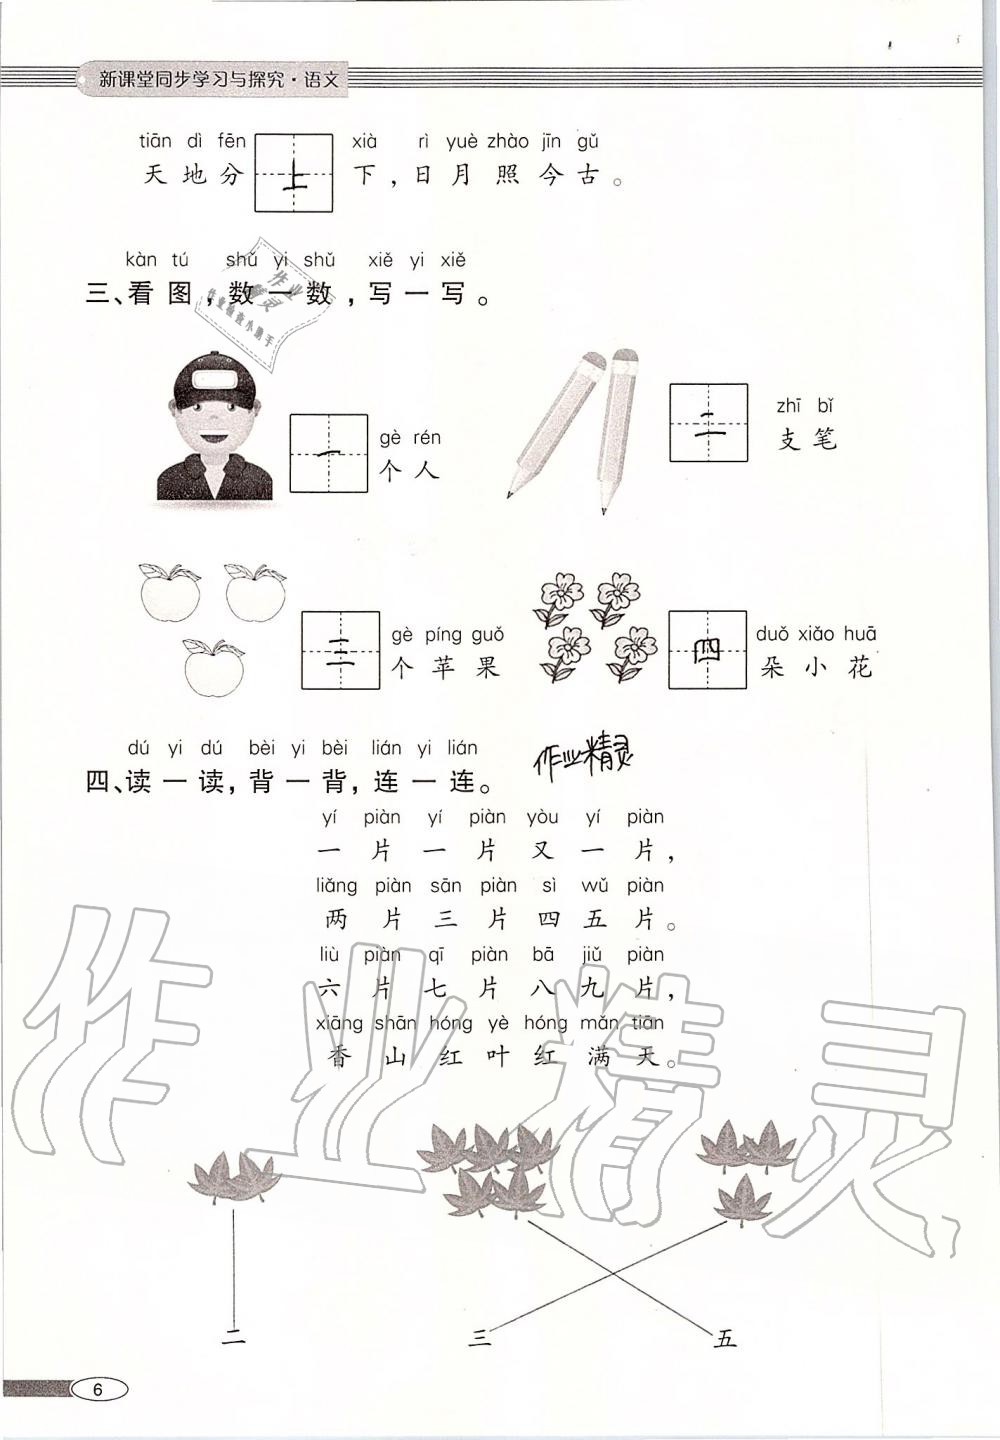 新课堂同步学习与探究·语文
tiān dì fēn xià rì yuè zhào jīn gǔ
天地分上下,日月照今古。
kàn tú shǔ yi shǔ xiě yi xiě
三、看图,数一数,写一写。
gè rén
一个人
zhī bǐ
二支笔
gè píng guǒ
三个苹果
duǒ xiǎo huā
四朵小花
dú yi dú bèi yi bèi lián yi lián
四、读一读,背一背,连一连。
作业精灵
yí piàn yí piàn yòu yí piàn
一片一片又一片,
liǎng piàn sān piàn sì wǔ piàn
两片三片四五片。
liù piàn qī piàn bā jiǔ piàn
六片七片八九片,
xiāng shān hóng yè hóng mǎn tiān
香山红叶红满天。
二 三 五
6
作业精灵
作业
精灵
作业检查小助手